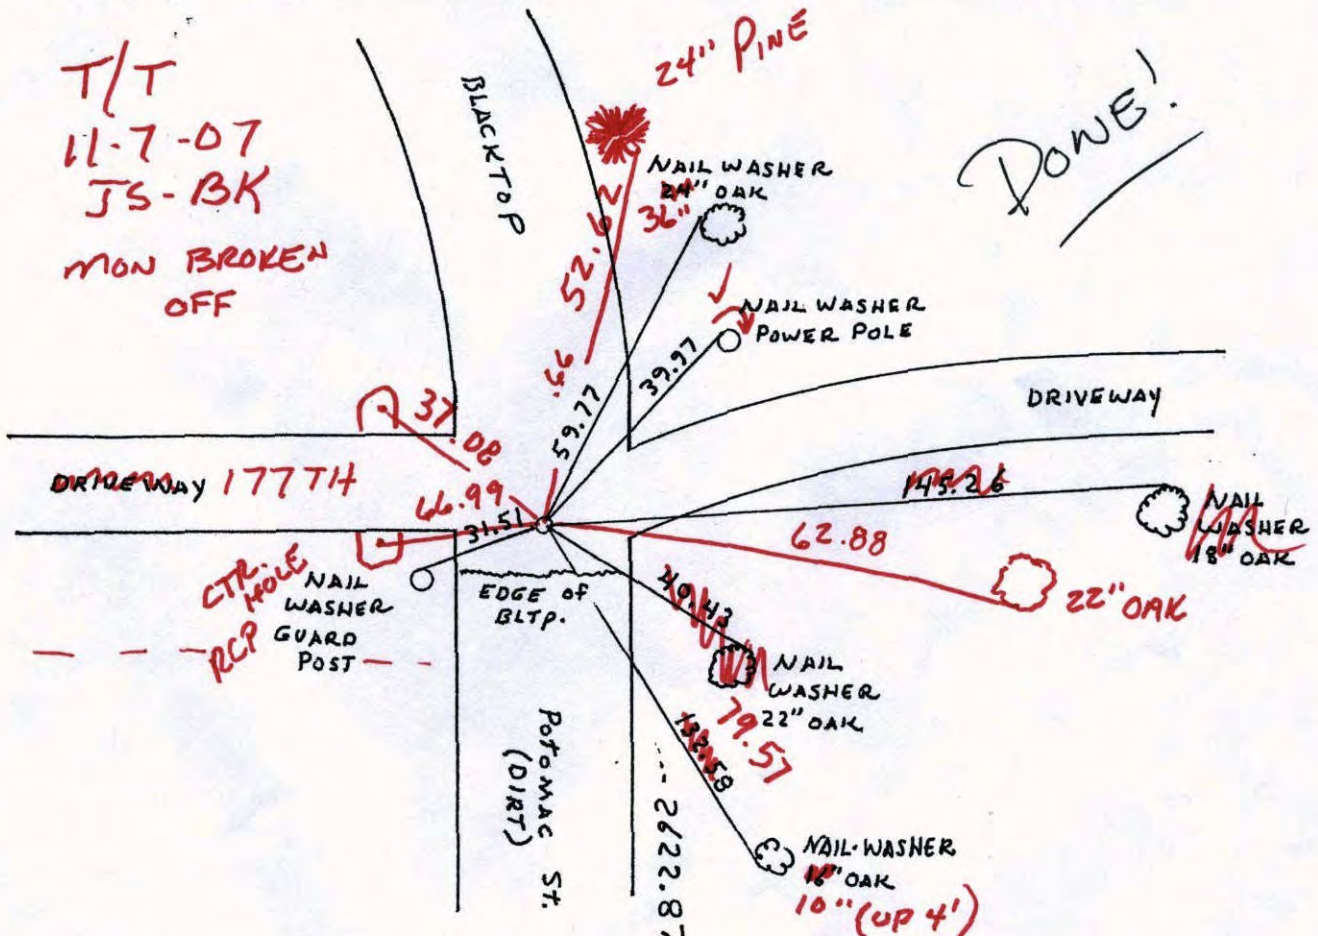 T/T
11-7-07
JS-BK
MON BROKEN
OFF
BLACKTOP
24" PINE
DONE!
NAIL WASHER
24" OAK
36"
52.62
.66
59.77
NAIL WASHER
POWER POLE
39.97
DRIVEWAY
37.08
DRIVEWAY 177TH
66.99
31.51
145.26
NAIL
WASHER
18" OAK
62.88
22" OAK
CTR.
HOLE
RCP
NAIL
WASHER
GUARD
POST
EDGE OF
BLTP.
40.43
NAIL
WASHER
22" OAK
79.57
132.58
POTOMAC ST.
(DIRT)
2622.87
NAIL-WASHER
16" OAK
10" (UP 4')